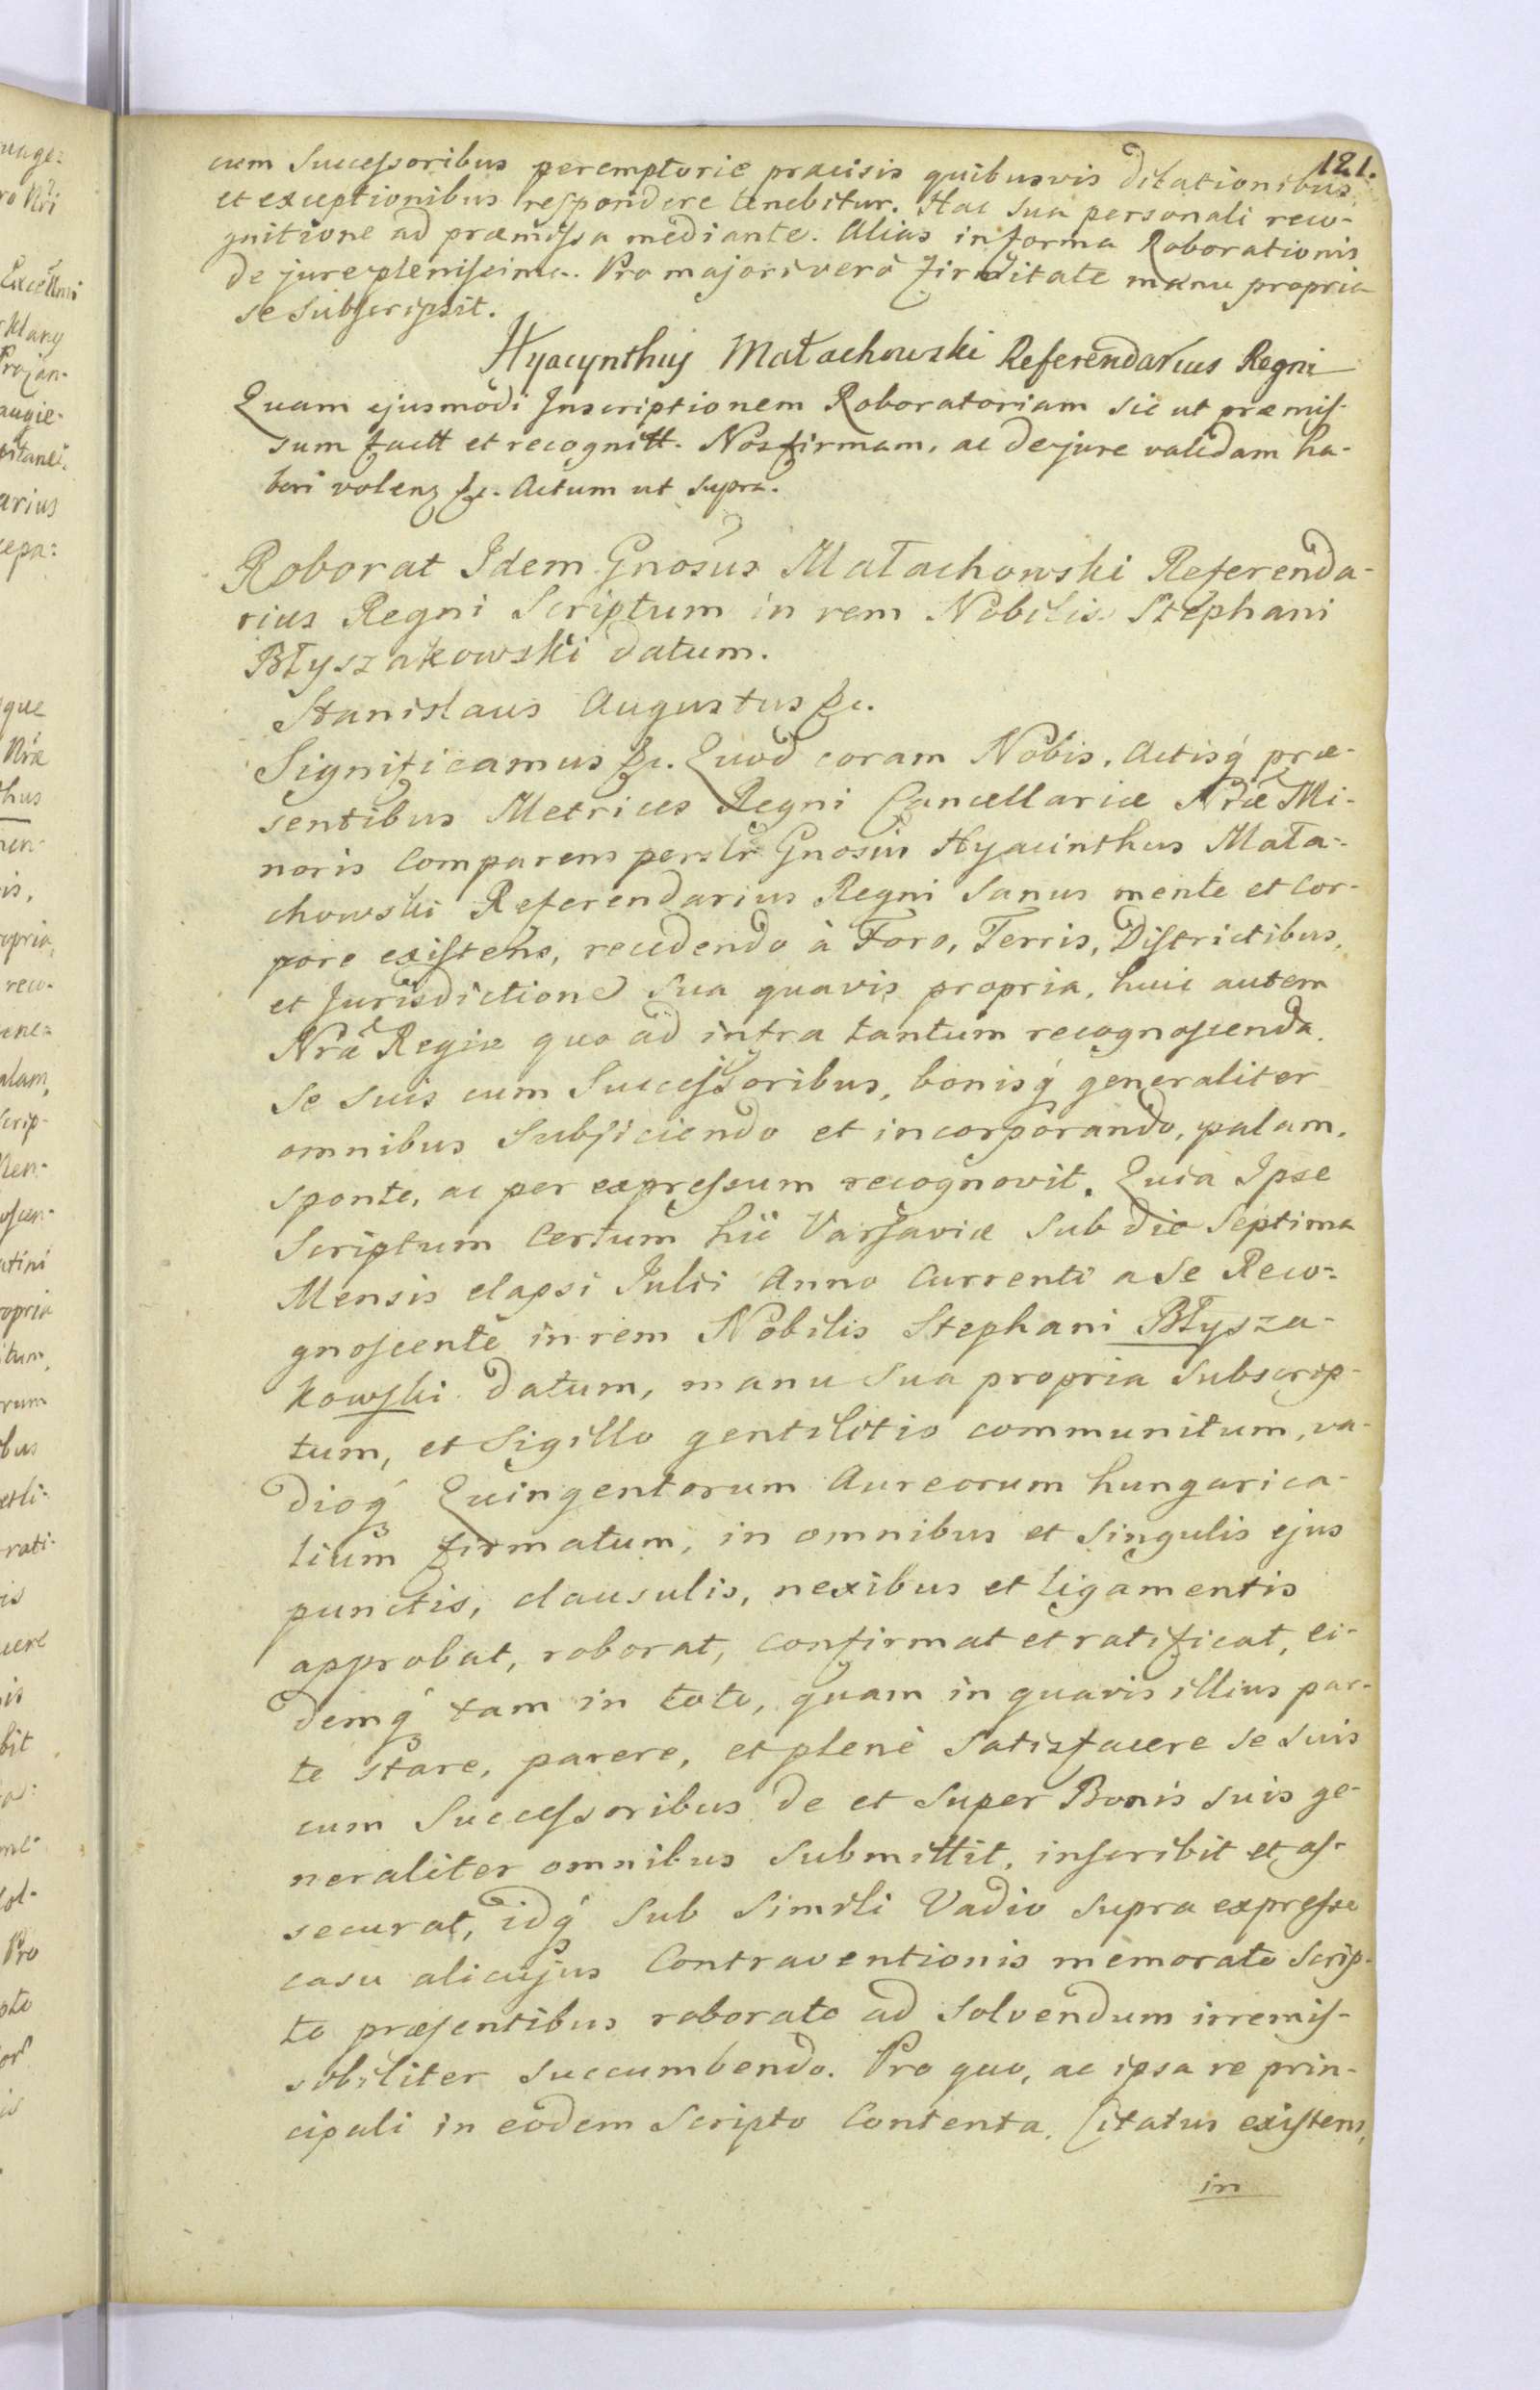 121.
cum Successoribus peremptorie praecisis quibusvis dilationibus,
et exceptionibus respondere tenebitur. Hac sua personali reco-
gnitione ad praemissa mediante. Alias in forma Roborationis
de jure plenissima. Pro majori verò firmitate manu propria
se subscripsit.
Hyacynthus Małachowski Referendarius Regni
Quam ejusmodi Inscriptionem Roboratoriam sic ut praemis-
sum factt et recognitt. Nos firmam, ac de jure validam ha-
beri volens &c. Actum ut supra.
Roborat Idem Gnosus Małachowski Referenda-
rius Regni Scriptum in rem Nobilis Stephani
Błyszakowski datum.
Stanislaus Augustus &c.
Significamus &c. Quod coram Nobis, Actisq́ prae-
sentibus Metrices Regni Cancellariae Nrae Mi-
noris Comparens perslr Gnosus Hyacinthus Mała-
chowski Referendarius Regni Sanus mente et Cor-
pore existens, recedendo à Foro, Terris, Districtibus,
et Jurisdictione sua quavis propria, huic autem
Nrae Regiae quo ad infra tantum recognoscenda.
Se suis cum Successoribus, bonisq́ generaliter
omnibus Subjiciendo et incorporando, palam,
sponte, ac per expressum recognovit. Quia Ipse
Scriptum Certum hic Varsaviae sub die Septima
Mensis elapsi Julii Anno Currenti a Se Reco-
gnoscente in rem Nobilis Stephani Błysza-
kowski datum, manu sua propria subscrip-
tum, et Sigillo gentilitio communitum, va-
dioq́ Quingentorum Aureorum hungarica-
lium firmatum, in omnibus et Singulis ejus
punctis, clausulis, nexibus et ligamentis
approbat, roborat, confirmat et ratificat, ei-
demq́ tam in toto, quam in quavis illius par-
te stare, parere, et plenè Satisfacere se suis
cum Successoribus de et super Bonis suis ge-
neraliter omnibus submittit, inscribit et as-
securat, idq́ sub simili Vadio supra expresso
casu alicujus Contraventionis memorato Scrip-
to praesentibus roborato ad solvendum irremis-
sibiliter succumbendo. Pro quo, ac ipsa re prin-
cipali in eodem Scripto Contenta, Citatus existens,
in